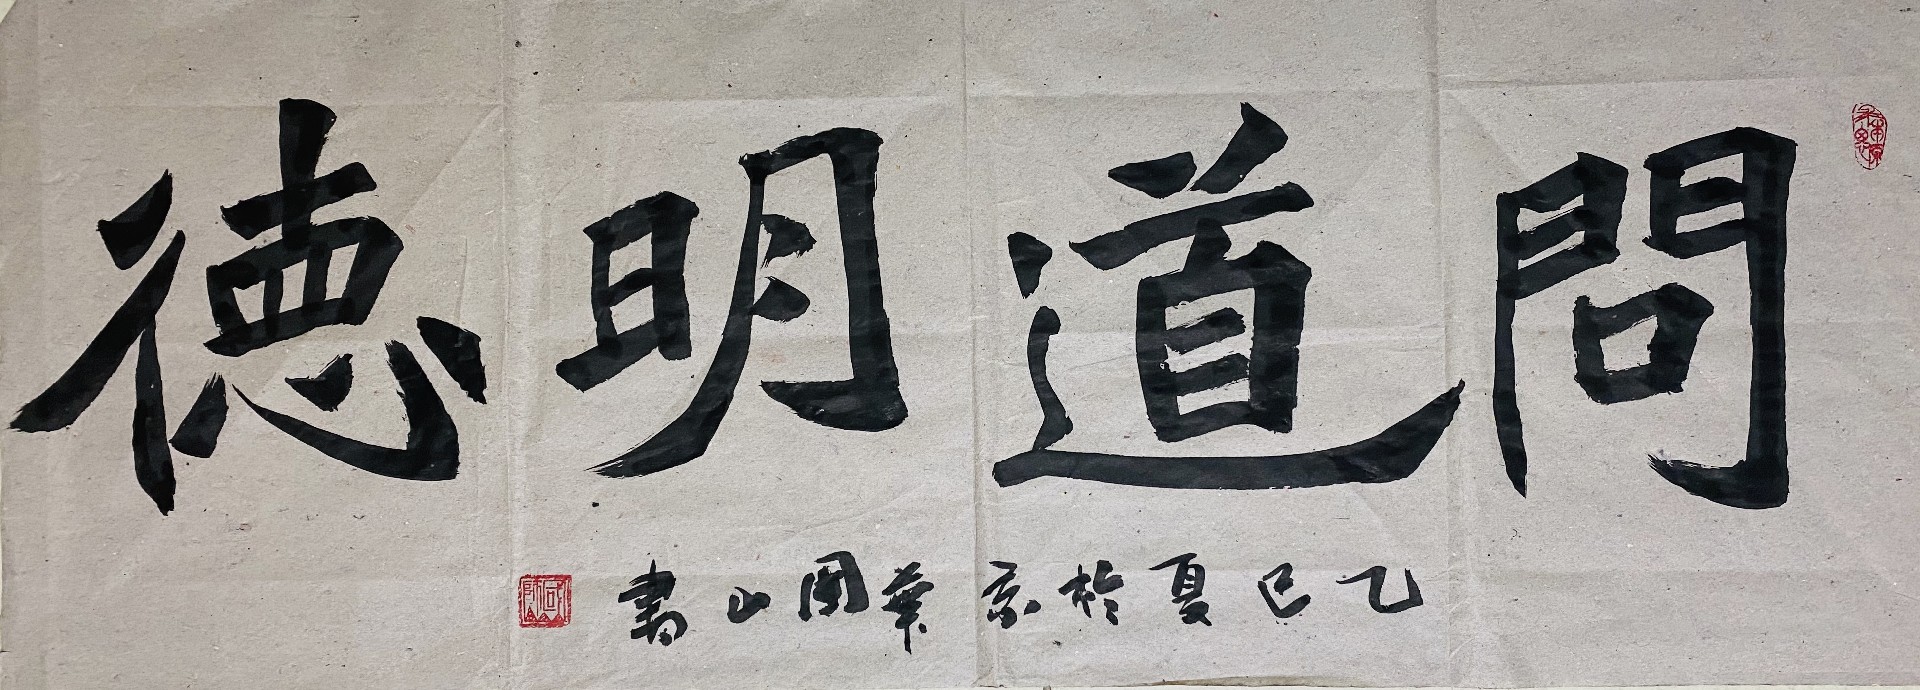 問道明德
乙巳夏於京葉国山書